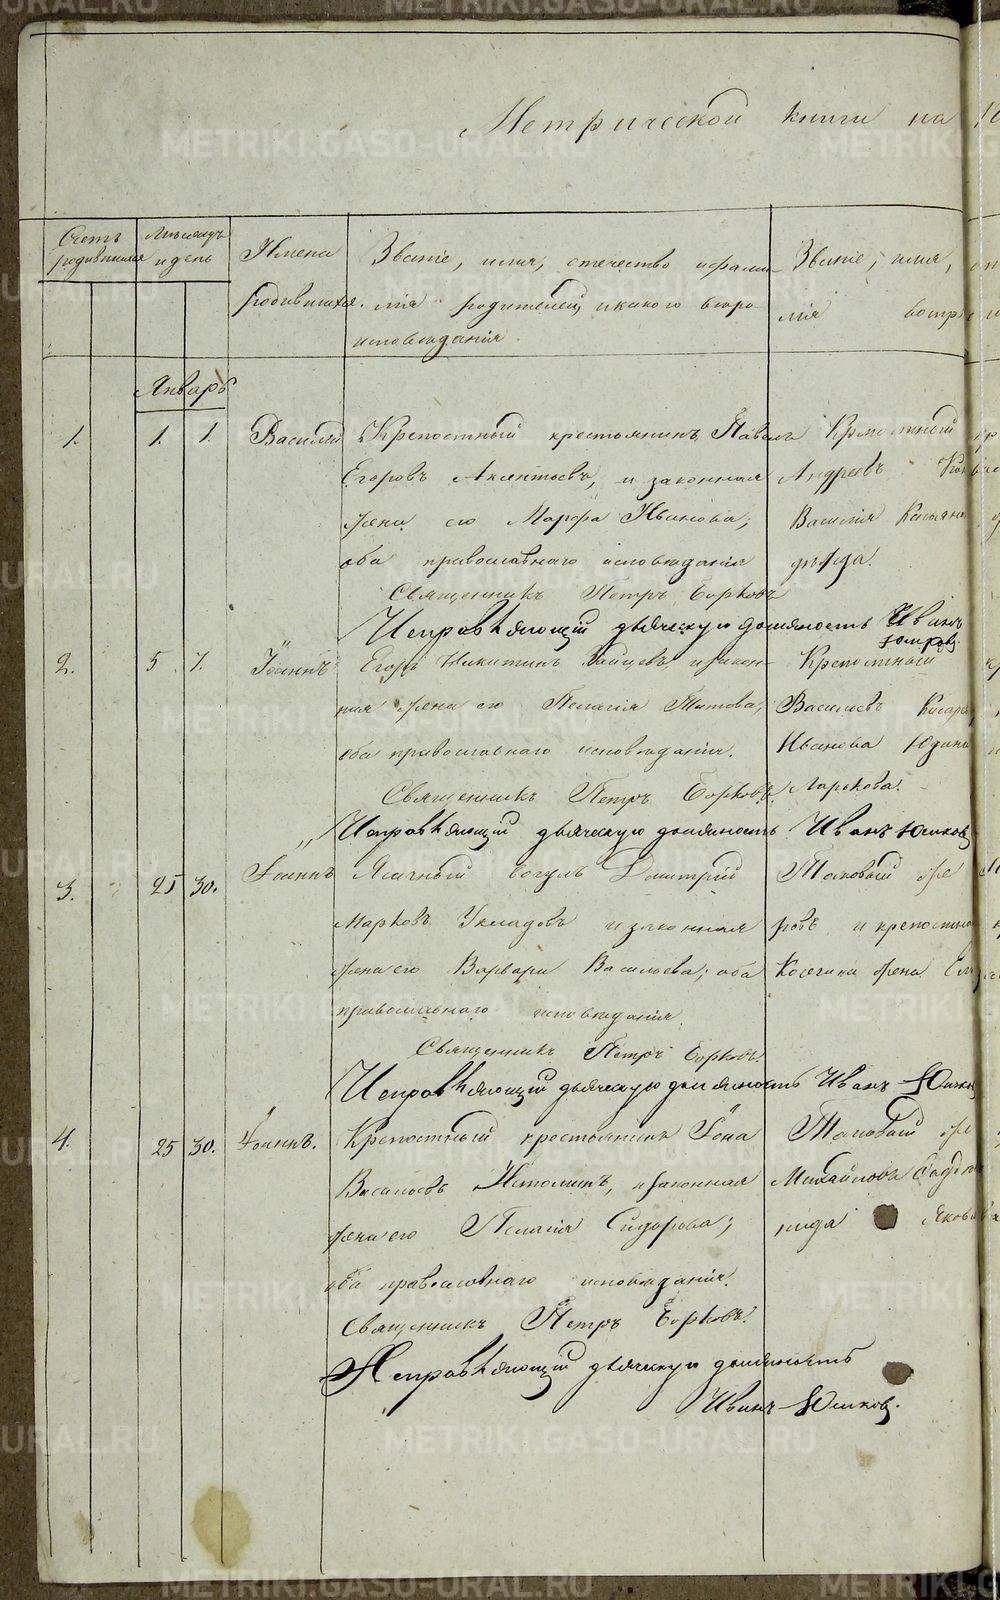 Метрической книги на 18
Счетъ родившихся
Мѣсяцъ и день
Имена родившихся.
Званіе, имя, отечество и фами-
лія родителей, и какого вѣро-
исповѣданія.
Званіе, имя, от
лія воспр
Январь
1. 1. 1. Василій Крепостный крестьянинъ Павелъ
Егоровъ Аксентьевъ, и законная
жена его Марфа Иванова;
оба православнаго исповѣданія
Крепостный кр
Андреевъ
Василія
дѣвда.
Священникъ Петръ Борковъ
Исправляющій дьяческую должность Иванъ
Юшковъ.
2. 5 7. Іоаннъ Егоръ Никитинъ Зайцевъ, и закон-
ная жена его Пелагія Титова;
оба православнаго исповѣданія.
Крепостный кр
Васильевъ
Иванова Юдина
Ларькова.
Священникъ Петръ Борковъ.
Исправляющій дьяческую должность Иванъ Юшковъ
3. 25 30. Іоаннъ Ясачный вогулъ Дмитрій
Марковъ Укладовъ и законная
жена его Варвара Васильева; оба
православнаго исповѣданія.
Таковый же
ровъ и крепостна
жена
Священникъ Петръ Борковъ.
Исправляющій дьяческую должность Иванъ Юшковъ
4. 25 30. Іоаннъ. Крепостный крестьянинъ Іона
Васильевъ Истоминъ, и законная
жена его Пелагія Сидорова;
оба православнаго исповѣданія.
Таковый же
Михайловъ
нида Яковл
Священникъ Петръ Борковъ.
Исправляющій дьяческую должность
Иванъ Юшковъ.
METRIKI.GASO-URAL.RU